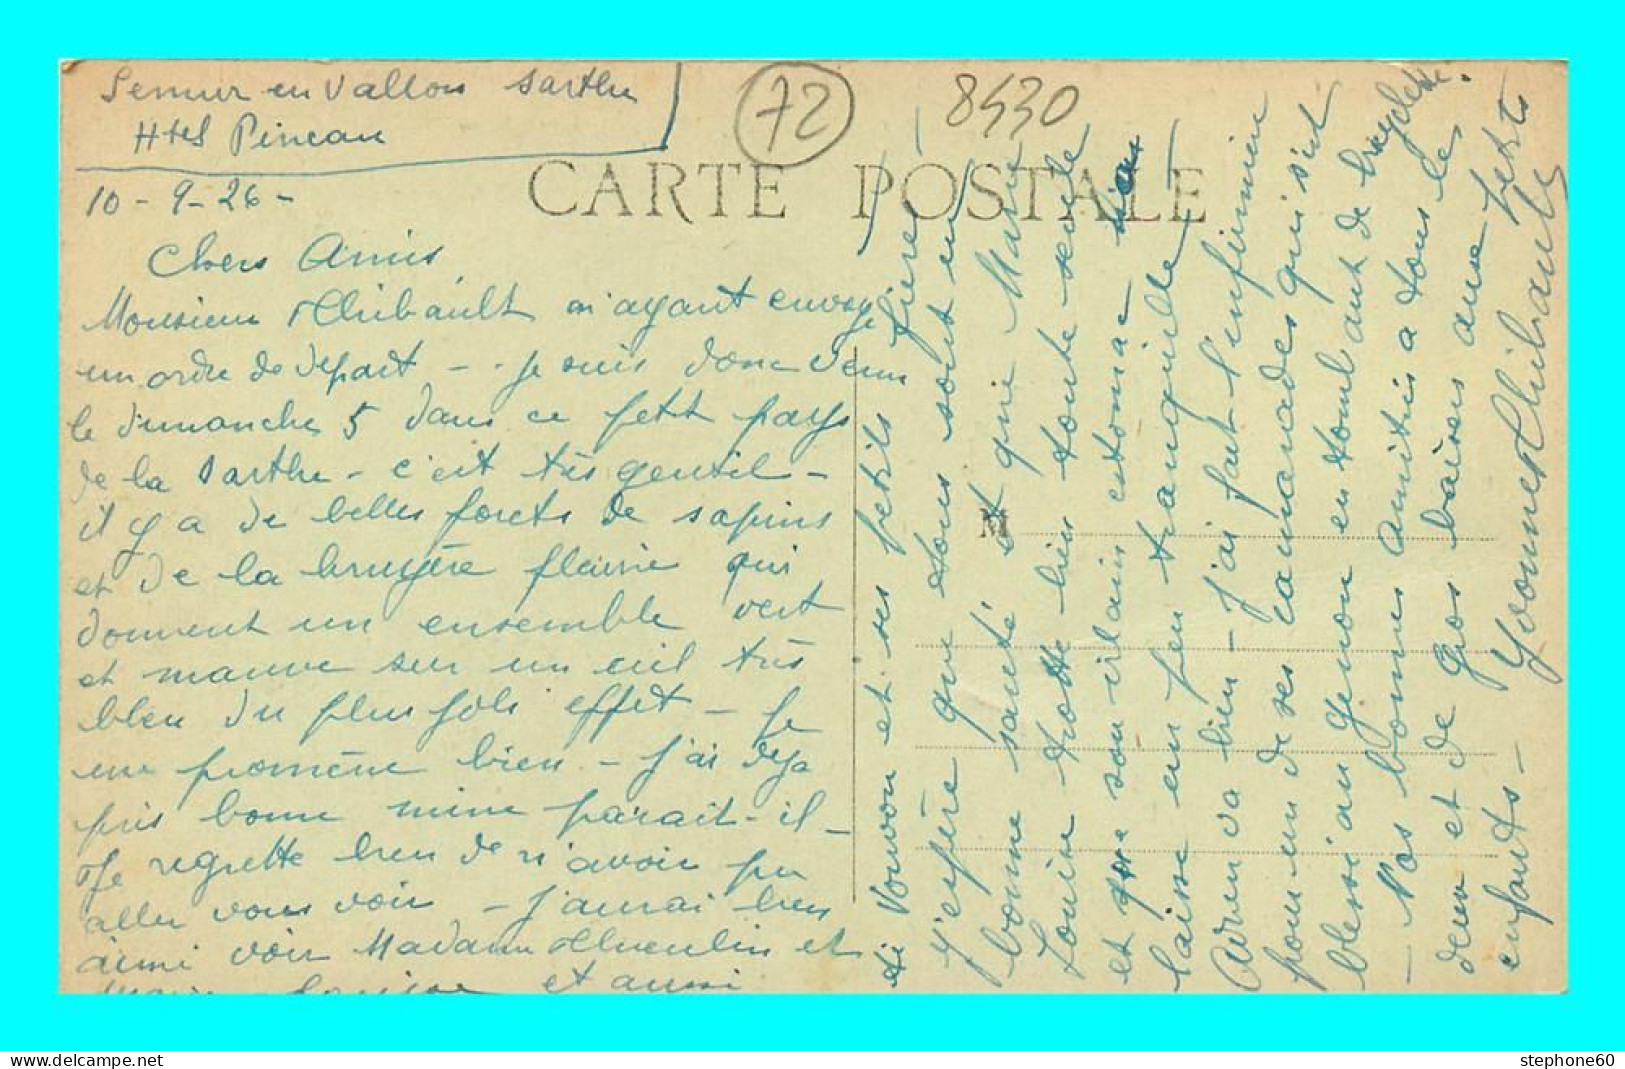 Semur en Vallon Sarthe
Htel Pineau
72
8430
CARTE POSTALE
10-9-26-
Chers Amis,
Monsieur Thibault m'ayant envoyé
un ordre de depart - je suis donc venu
le dimanche 5 dans ce petit pays
de la Sarthe - c'est très gentil -
il y a de belles forets de sapins
et de la bruyère fleurie qui
donnent un ensemble vert
et mauve sur un ciel très
bleu du plus joli effet - je
me promène bien - j'ai deja
pris bonne mine parait-il -
Je regrette bien de n'avoir pu
aller vous voir - j'aurai bien
aimé voir Madame et
Marie - Louise et aussi
Vonvon et ses petits frères
J'espère que tous sont en
bonne santé et que Marie
Louise trotte bien toute seule
et que son vilain estomac la
laisse un peu tranquille
Adrien va bien - j'ai fait l'infirmière
pour un de ses camarades qui s'est
blessé au genou en tombant de bicyclette.
- Nos bonnes amitiés à tous les
deux et de gros baisers aux petits
enfants -
Yvonne Thibault
M
stephone60